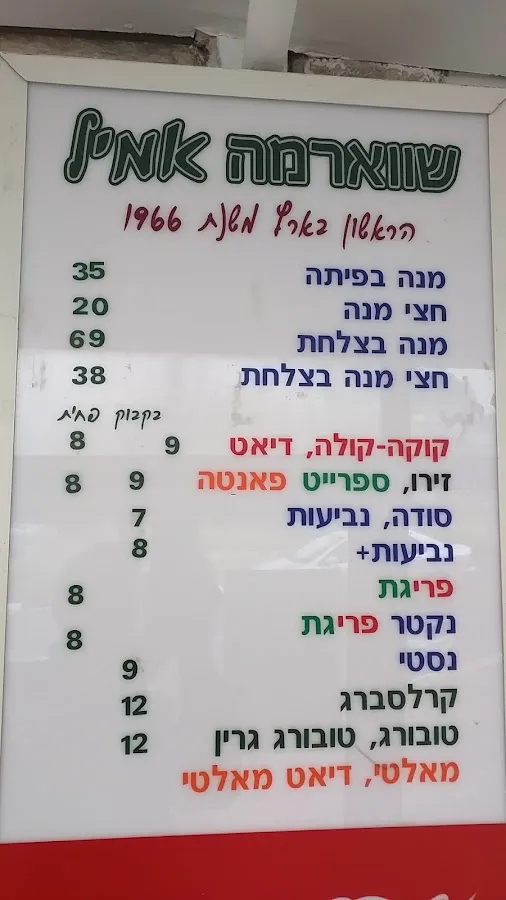 שווארמה אמיל
הראשון בארץ משנת 1966
מנה בפיתה 35
חצי מנה 20
מנה בצלחת 69
חצי מנה בצלחת 38
בקבוק פחית
קוקה-קולה, דיאט 9 8
זירו, ספרייט פאנטה 9 8
סודה, נביעות 7
נביעות+ 8
פריגת 8
נקטר פריגת 8
נסטי 9
קרלסברג 12
טובורג, טובורג גרין 12
מאלטי, דיאט מאלטי